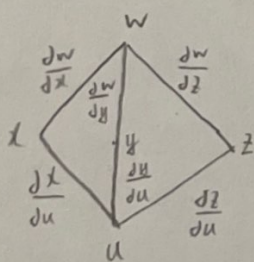 w
∂w/∂x ∂w/∂y ∂w/∂z
x y z
∂x/∂u ∂y/∂u ∂z/∂u
u